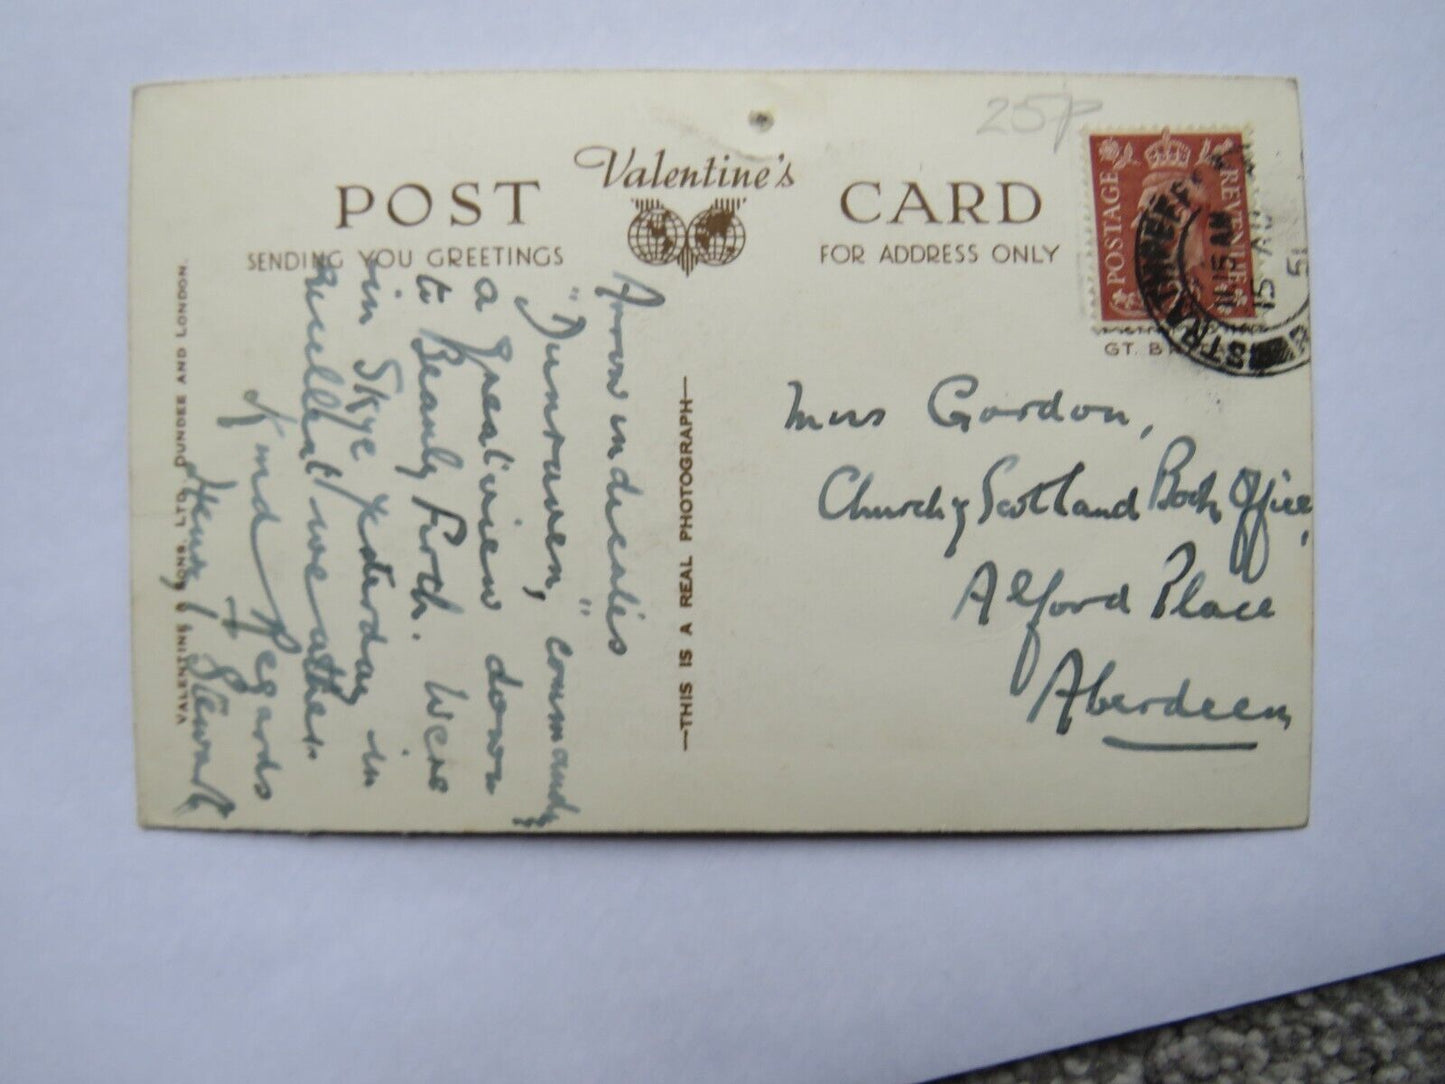 25p
Valentine's
POST CARD
SENDING YOU GREETINGS
FOR ADDRESS ONLY
POSTAGE REVENUE
11 15 AM
15 AU
51
GT. B
Miss Gordon,
Church of Scotland Book Office
Alford Place
Aberdeen
THIS IS A REAL PHOTOGRAPH
Arrow indicates
"Dunraven," commands
a great view down
to Beauly Firth. Were
in Skye yesterday in
excellent weather.
Kind Regards
Henry J Stewart
VALENTINE & SONS, LTD., DUNDEE AND LONDON.